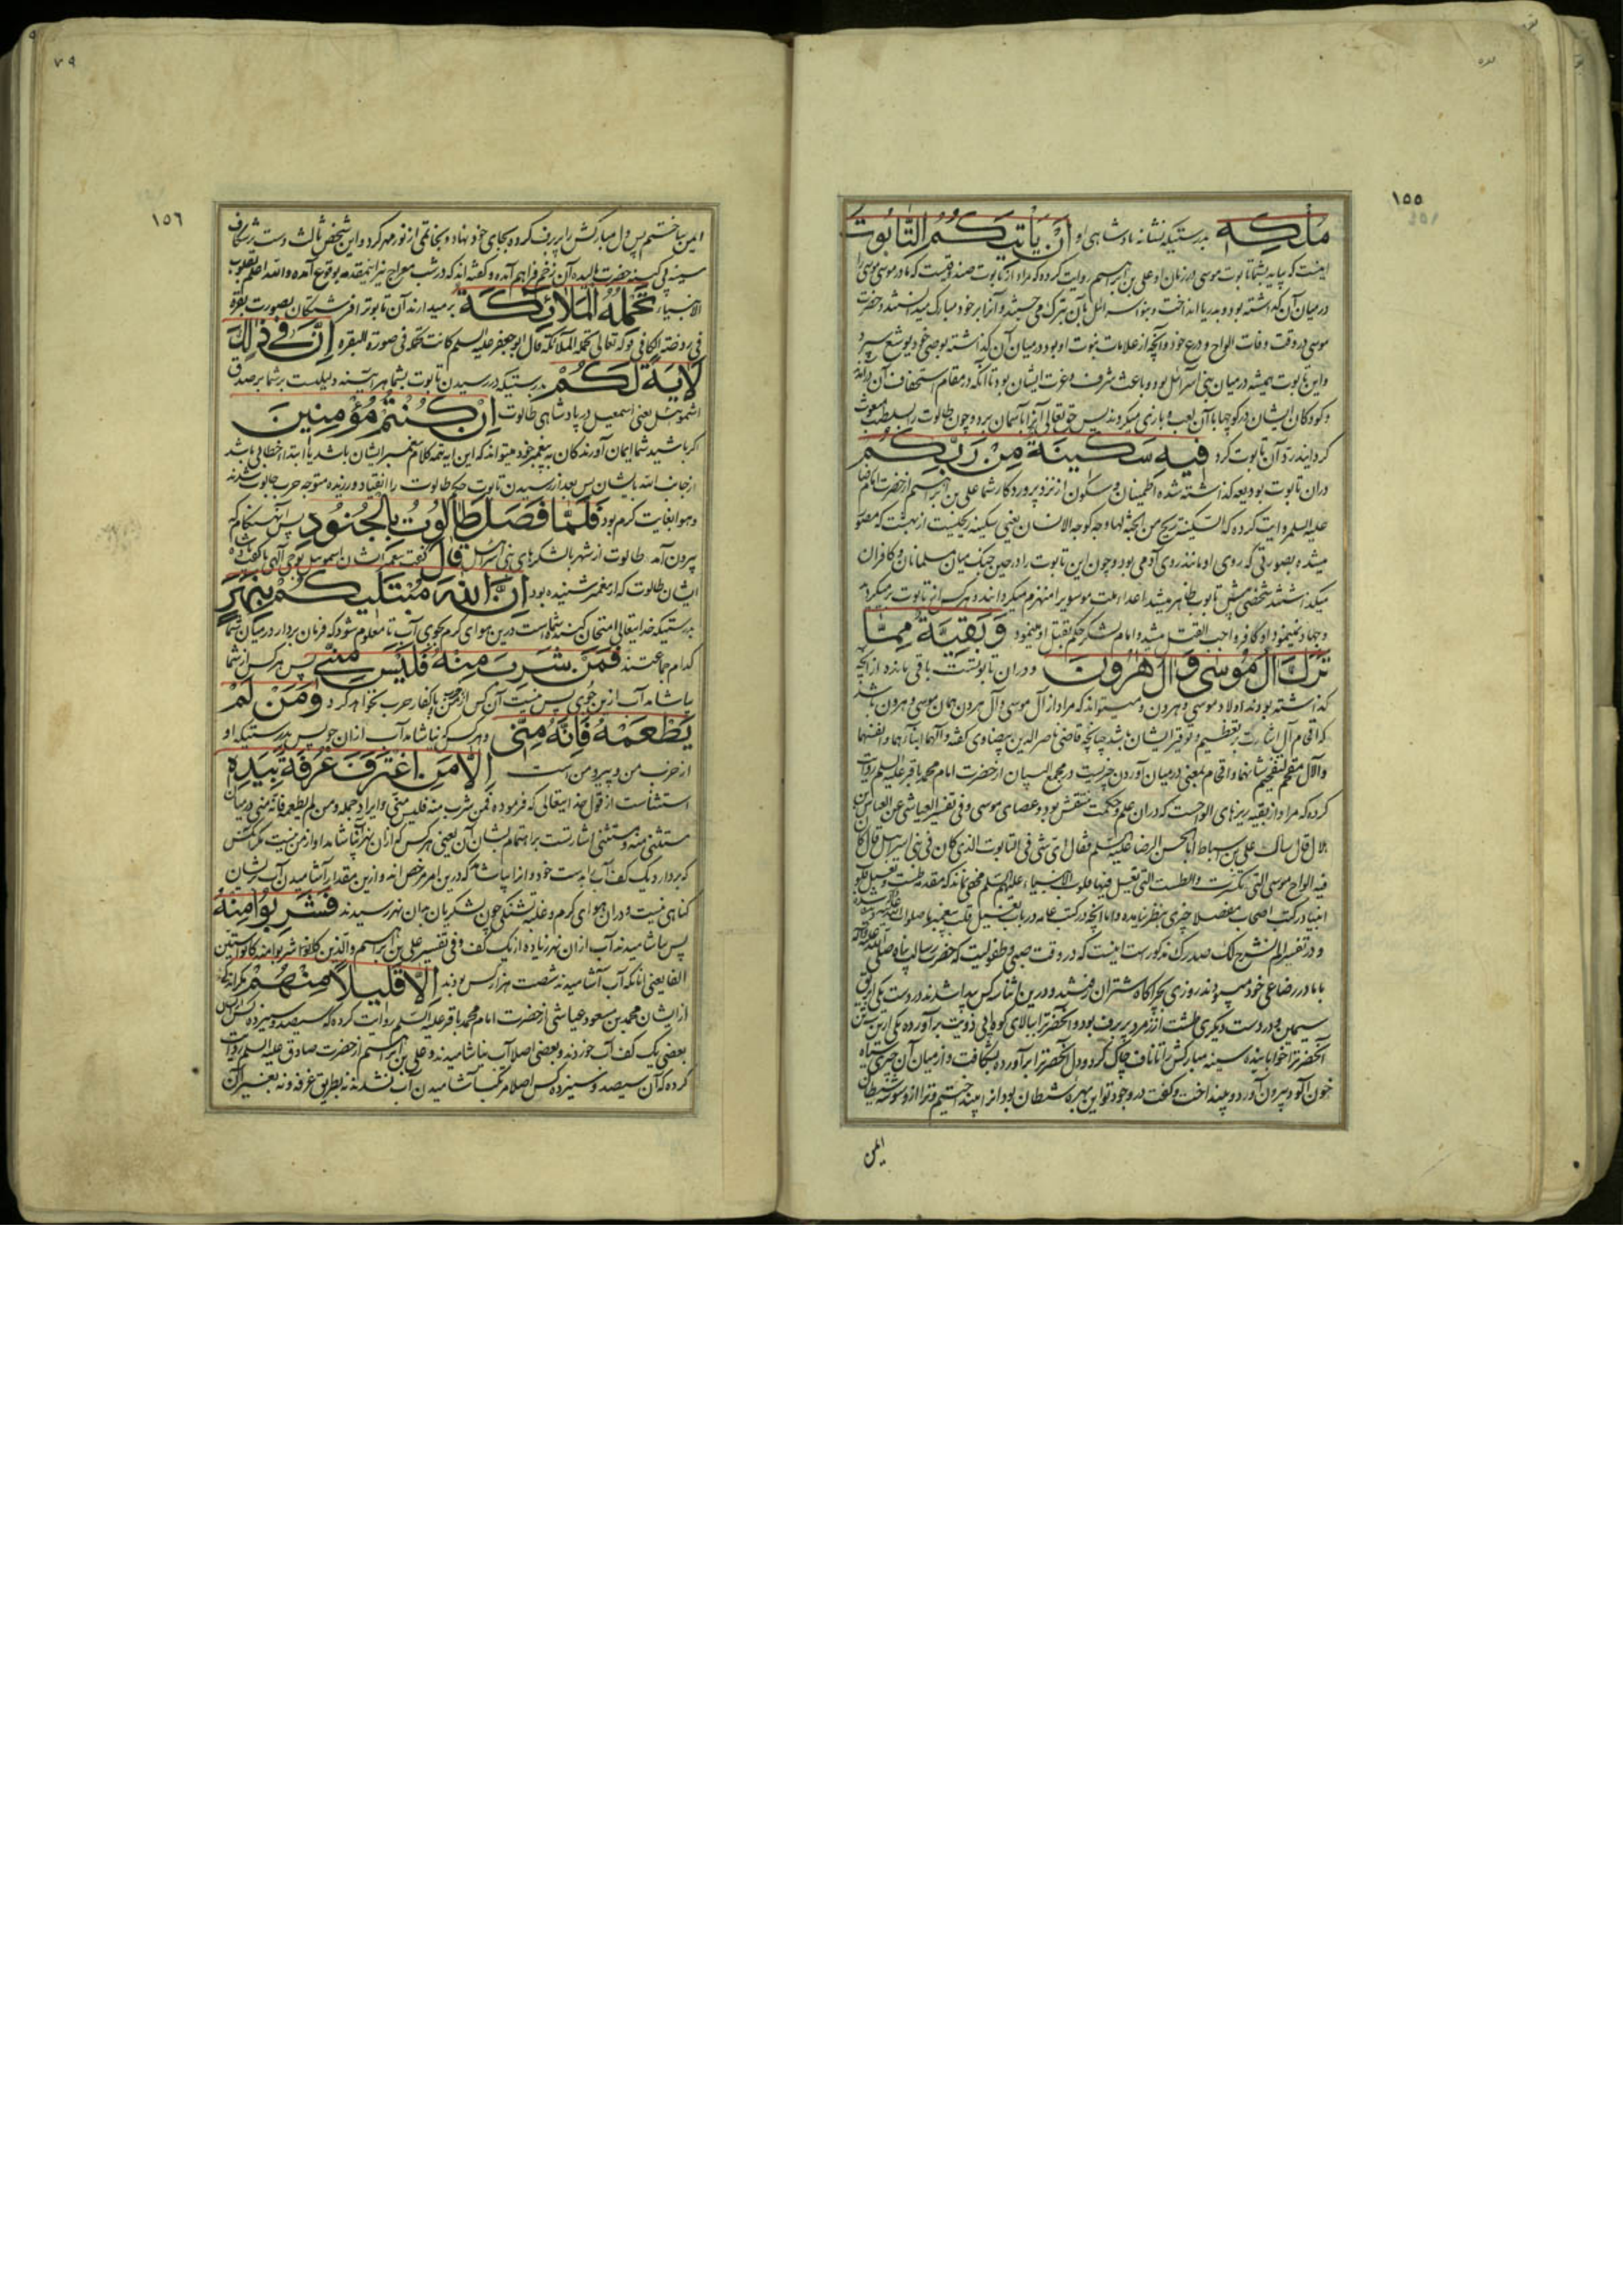 ١٥٥
مُلْكِهِ بدرستیکه نشانه پادشاهی او اَنْ يَأْتِيَكُمُ التَّابُوتُ
اینست که بیاید بشما تابوت موسی در زمان او علی بن ابراهیم روایت کرده که مراد از تابوت صندوقیست که مادر موسی موسی را
در میان آن گذاشته بود و بدریا انداخت و بنو اسرائیل بآن تبرک می جستند و آنرا بر خود مبارک میدانستند و حضرت
موسی در وقت وفات الواح و درع خود و آنچه از علامات نبوت او بود در میان آن گذاشته بوصی خود یوشع سپرد
و این تابوت همیشه در میان بنی اسرائیل بود و باعث شرف و عزت ایشان بود تا آنکه در مقام استخفاف آن
و کودکان ایشان در کوچها با آن لعب و بازی میکردند پس حق تعالی آنرا بآسمان برد و چون طالوت را
گردانید رد آن تابوت کرد فِيهِ سَكِينَةٌ مِنْ رَبِّكُمْ
در آن تابوت بودیعه گذاشته شده اطمینان و سکون از نزد پروردگار شما علی بن ابراهیم از حضرت امام رضا
علیه السلم روایت کرده که السکینة ریح من الجنة لها وجه کوجه الانسان یعنی سکینه ریحیست از بهشت که مصور
میشده بصورتی که روی او مانند روی آدمی بود و چون این تابوت را در حین جنگ میان مسلمانان و کافران
میگذاشتند شخصی پیش تابوت ظاهر میشد اعداء ملت موسویرا منهزم میگردانید و هر کس از تابوت بر میگردید
و جهاد نمینمود او کافر و واجب القتل میشد و امام لشکر حکم بقتل او مینمود وَ بَقِيَّةٌ مِمَّا
تَرَكَ اٰلُ مُوسٰى وَ اٰلُ هٰرُونَ و در آن تابوتست باقی مانده از آنچه
گذاشته بودند اولاد موسی و هرون و میتواند که مراد از آل موسی و آل هرون همان موسی و هرون باشد
که اقحام آل اشارت بتعظیم و توقیر ایشان باشد چنانچه قاضی ناصر الدین بیضاوی گفته و آلهما ابناؤهما و انفسهما
والآل مقحم لتفخیم شانهما و اقحام بمعنی در میان آوردن چیزیست و در مجمع البیان از حضرت امام محمد باقر علیه السلم روایت
کرده که مراد از بقیه ریزهای الواحست که در آن علم و حکمت منتقش بود و عصای موسی و فی تفسیر العیاشی عن العباس بن
هلال قال سال علی بن اسباط ابا الحسن الرضا علیه السلم فقال ای شی فی التابوت الذی کان فی بنی اسرائیل قال کان
فیه الواح موسی التی تکسرت والطست التی تغسل فیها قلوب الانبیاء علیهم السلم مخفی نماند که مقدمه طست و تغسیل قلوب
انبیا در کتب اصحاب مفصلا چیزی بنظر نیامده و اما آنچه در کتب عامه در باب تغسیل قلب پیغمبر ما صلوات الله علیه
و در تفسیر الم نشرح لک صدرک مذکور است اینست که در وقت صبی و طفولیت که حضرت رسالت پناه صلی الله علیه و آله
با مادر رضاعی خود میبودند روزی بچراگاه شتران رفتند و درین اثنا سه کس پیدا شدند در دست یکی ابریق
سیمین و در دست دیگری طشت از زمرد پر برف بود و آنحضرترا ببالای کوه بی اذیت برآورده یکی ازین سه تن
آنحضرترا خوابانیده سینه مبارکش را تا ناف چاک کرد و دل آنحضرترا برآورده بشکافت و از میان آن چیزی سیاه
خون آلود بیرون آورد و بینداخت و گفت در وجود تو این بهره شیطان بود انداختیم و ترا از وسوسه شیطان
ایمن
١٥٦
ایمن ساختیم پس دل مبارکش را پر برف کرده بجای خود نهاد و بخاتمی از نور مهر کرد و این شخص ثالث دست بر شکاف
سینه بی کینه حضرت مالیده آن زخم فراهم آمده و گفته اند که در شب معراج نیز اینمقدمه بوقوع آمده والله اعلم بقلوب
الانبیاء تَحْمِلُهُ الْمَلاٰئِكَةُ بر میدارند آن تابوترا فرشتگان بصورت بقره
فی روضة الکافی قوله تعالی تحمله الملائکة قال ابوجعفر علیه السلم کانت تحمله فی صورة البقره اِنَّ فِي ذٰلِكَ
لَاٰيَةً لَكُمْ بدرستیکه در رسیدن تابوت بشما هر آینه دلیلست بر شما بر صدق
اشموئیل یعنی اسمعیل در پادشاهی طالوت اِنْ كُنْتُمْ مُؤْمِنِينَ
اگر باشید شما ایمان آورندگان به پیغمبر خود میتواند که این آیه تتمه کلام پیغمبر ایشان باشد یا ابتداء خطابی باشد
از جانب الله بایشان پس بعد از رسیدن تابوت حکم طالوت را انقیاد ورزیده متوجه حرب جالوت شدند
و هوا بغایت گرم بود فَلَمَّا فَصَلَ طَالُوتُ بِالْجُنُودِ پس آن هنگام که
بیرون آمد طالوت از شهر با لشکرهای بنی اسرائیل قَالَ گفت پیغمبر ایشان اسموییل بوحی الهی یا گفت
ایشان طالوت که از پیغمبر شنیده بود اِنَّ اللّٰهَ مُبْتَلِيكُمْ بِنَهَرٍ
بدرستیکه خدایتعالی امتحان کننده شماست درین هوای گرم بجوی آب تا معلوم شود که فرمان بردار در میان شما
کدام جماعتند فَمَنْ شَرِبَ مِنْهُ فَلَيْسَ مِنِّي پس هر کس از شما
بیاشامد آب ازین جوی پس نیست آن کس از من با کفار حرب نخواهد کرد وَمَنْ لَمْ
يَطْعَمْهُ فَاِنَّهُ مِنِّي و هر کس که نیاشامد آب از آن جوی پس بدرستیکه او
از حزب من و پیرو من است اِلَّا مَنِ اغْتَرَفَ غُرْفَةً بِيَدِهِ
استثناست از قول خدایتعالی که فرموده فمن شرب منه فلیس منی و ایراد جمله و من لم یطعمه فانه منی در میان
مستثنی منه و مستثنی اشارتست بر اهتمام بشان آن یعنی هر کس که از آن نهر آب آشامد او از من نیست مگر آنکس
که بردارد یک کف آب بدست خود و آنرا بیاشامد که درین امر مرخص اند و ازین مقدار آشامیدن آب بر ایشان
گناهی نیست و در آن هوای گرم و غلبه تشنگی چون لشکریان بآن نهر رسیدند فَشَرِبُوا مِنْهُ
پس بیاشامیدند آب از آن نهر زیاده از یک کف و فی تفسیر علی بن ابراهیم والذین کانوا شربوا منه کانوا ستین
الفا یعنی آنانکه آب آشامیدند شصت هزار کس بودند اِلَّا قَلِيلاً مِنْهُمْ مگر اندکی
از ایشان محمد بن مسعود عیاشی از حضرت امام محمد باقر علیه السلم روایت کرده که سیصد و سیزده کس
بعضی یک کف آب خوردند و بعضی اصلا آب نیاشامیدند و علی بن ابراهیم از حضرت صادق علیه السلم روایت
کرده که آن سیصد و سیزده کس اصلا مرتکب آشامیدن آب نشدند نه بطریق غرفه و نه بغیر آن